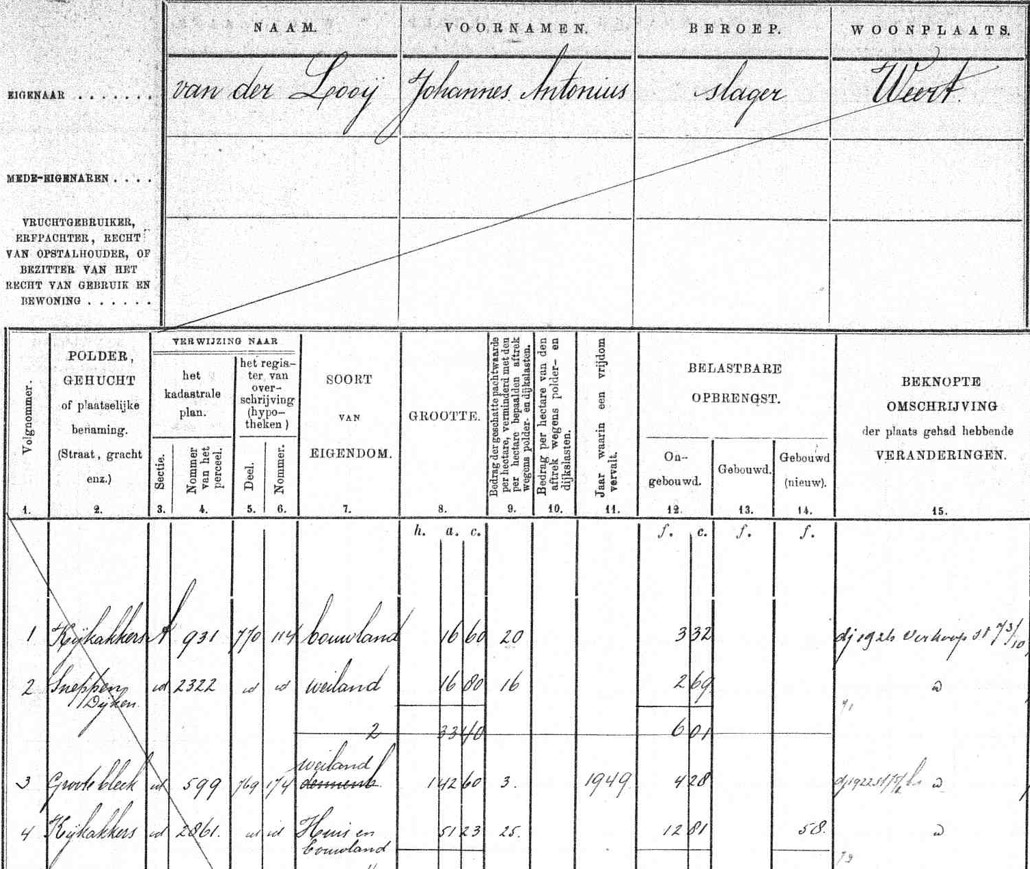 NAAM. VOORNAMEN. BEROEP. WOONPLAATS.
EIGENAAR ....... van der Looij Johannes Antonius slager Weert.
MEDE-EIGENAREN ....
VRUCHTGEBRUIKER,
ERFPACHTER, RECHT
VAN OPSTALHOUDER, OF
BEZITTER VAN HET
RECHT VAN GEBRUIK EN
BEWONING ......
Volgnommer.
POLDER,
GEHUCHT
of plaatselijke
benaming.
(Straat, gracht
enz.)
VERWIJZING NAAR
het
kadastrale
plan.
Sectie.
Nommer
van het
perceel.
het regis-
ter van
over-
schrijving
(hypo-
theken)
Deel.
Nommer.
SOORT
VAN
EIGENDOM.
GROOTTE.
Bedrag der geschatte pachtwaarde
per hectare, verminderd met den
per hectare bepaalden aftrek
wegens polder- en dijkslasten.
Bedrag per hectare van den
aftrek wegens polder- en
dijkslasten.
Jaar waarin een vrijdom
vervalt.
BELASTBARE
OPBRENGST.
On-
gebouwd.
Gebouwd.
Gebouwd
(nieuw).
BEKNOPTE
OMSCHRIJVING
der plaats gehad hebbende
VERANDERINGEN.
1. 2. 3. 4. 5. 6. 7. 8. 9. 10. 11. 12. 13. 14. 15.
h. a. c. f. c. f. f.
1 Kijkakkers A 931 770 114 bouwland 16 60 20 3 32 dj 1926 Verkoop
2 Sneppen id 2322 id id weiland 16 80 16 2 69
Dijken
2 33 40 6 01
weiland
3 Groote bleek id 599 769 174 dennenb 1 42 60 3. 1949 4 28 dj 1922
4 Kijkakkers id 2861. id id Huis en 51 23 25. 12 81 58.
bouwland